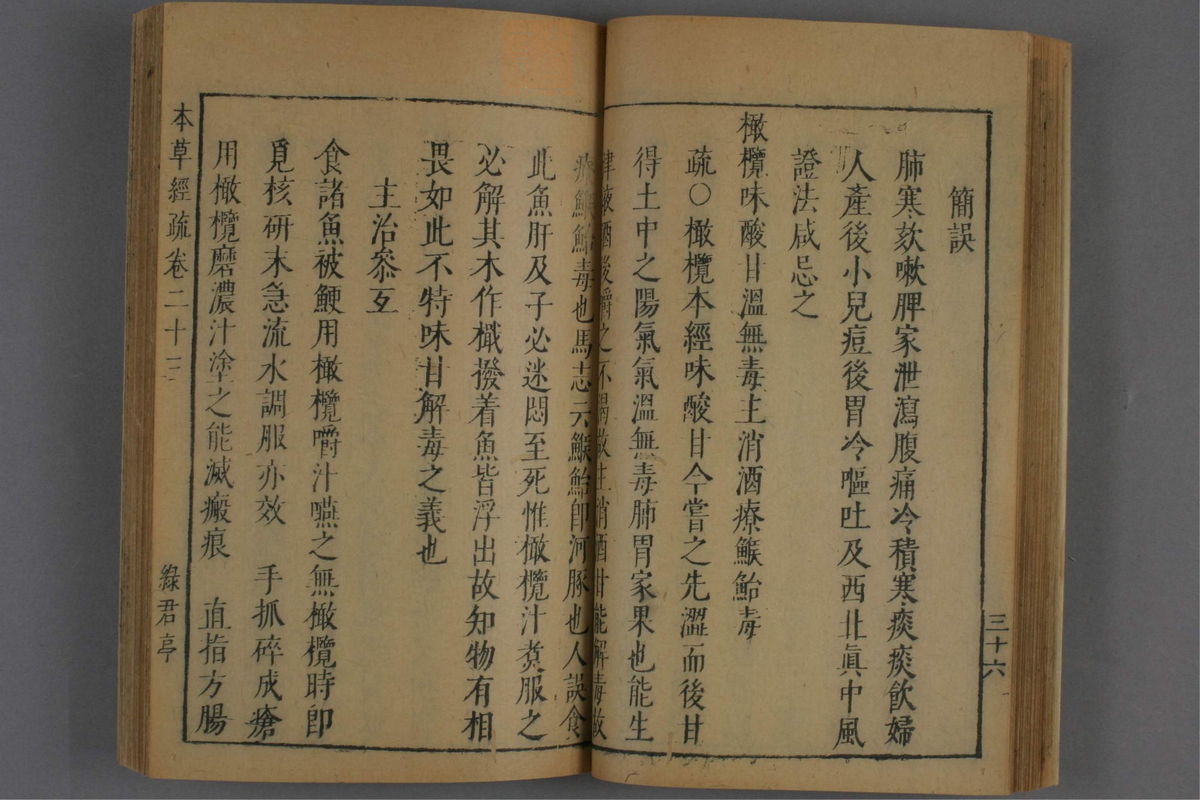 簡誤
肺寒欬嗽脾家泄瀉腹痛冷積寒痰痰飲婦
人產後小兒痘後胃冷嘔吐及西北眞中風
證法咸忌之
橄欖味酸甘溫無毒主消酒療鯸鮐毒
疏○橄欖本經味酸甘今嘗之先澀而後甘
得土中之陽氣氣溫無毒肺胃家果也能生
津液酒後嚼之不渴故主消酒甘能解毒故
療鯸鮐毒也馬志云鯸鮐卽河豚也人誤食
此魚肝及子必迷悶至死惟橄欖汁煑服之
必解其木作檝撥着魚皆浮出故知物有相
畏如此不特味甘解毒之義也
主治叅互
食諸魚被鯁用橄欖嚼汁嚥之無橄欖時卽
覓核研末急流水調服亦效 手抓碎成瘡
用橄欖磨濃汁塗之能滅瘢痕 直指方腸
三十六
本草經疏卷二十三
綠君亭